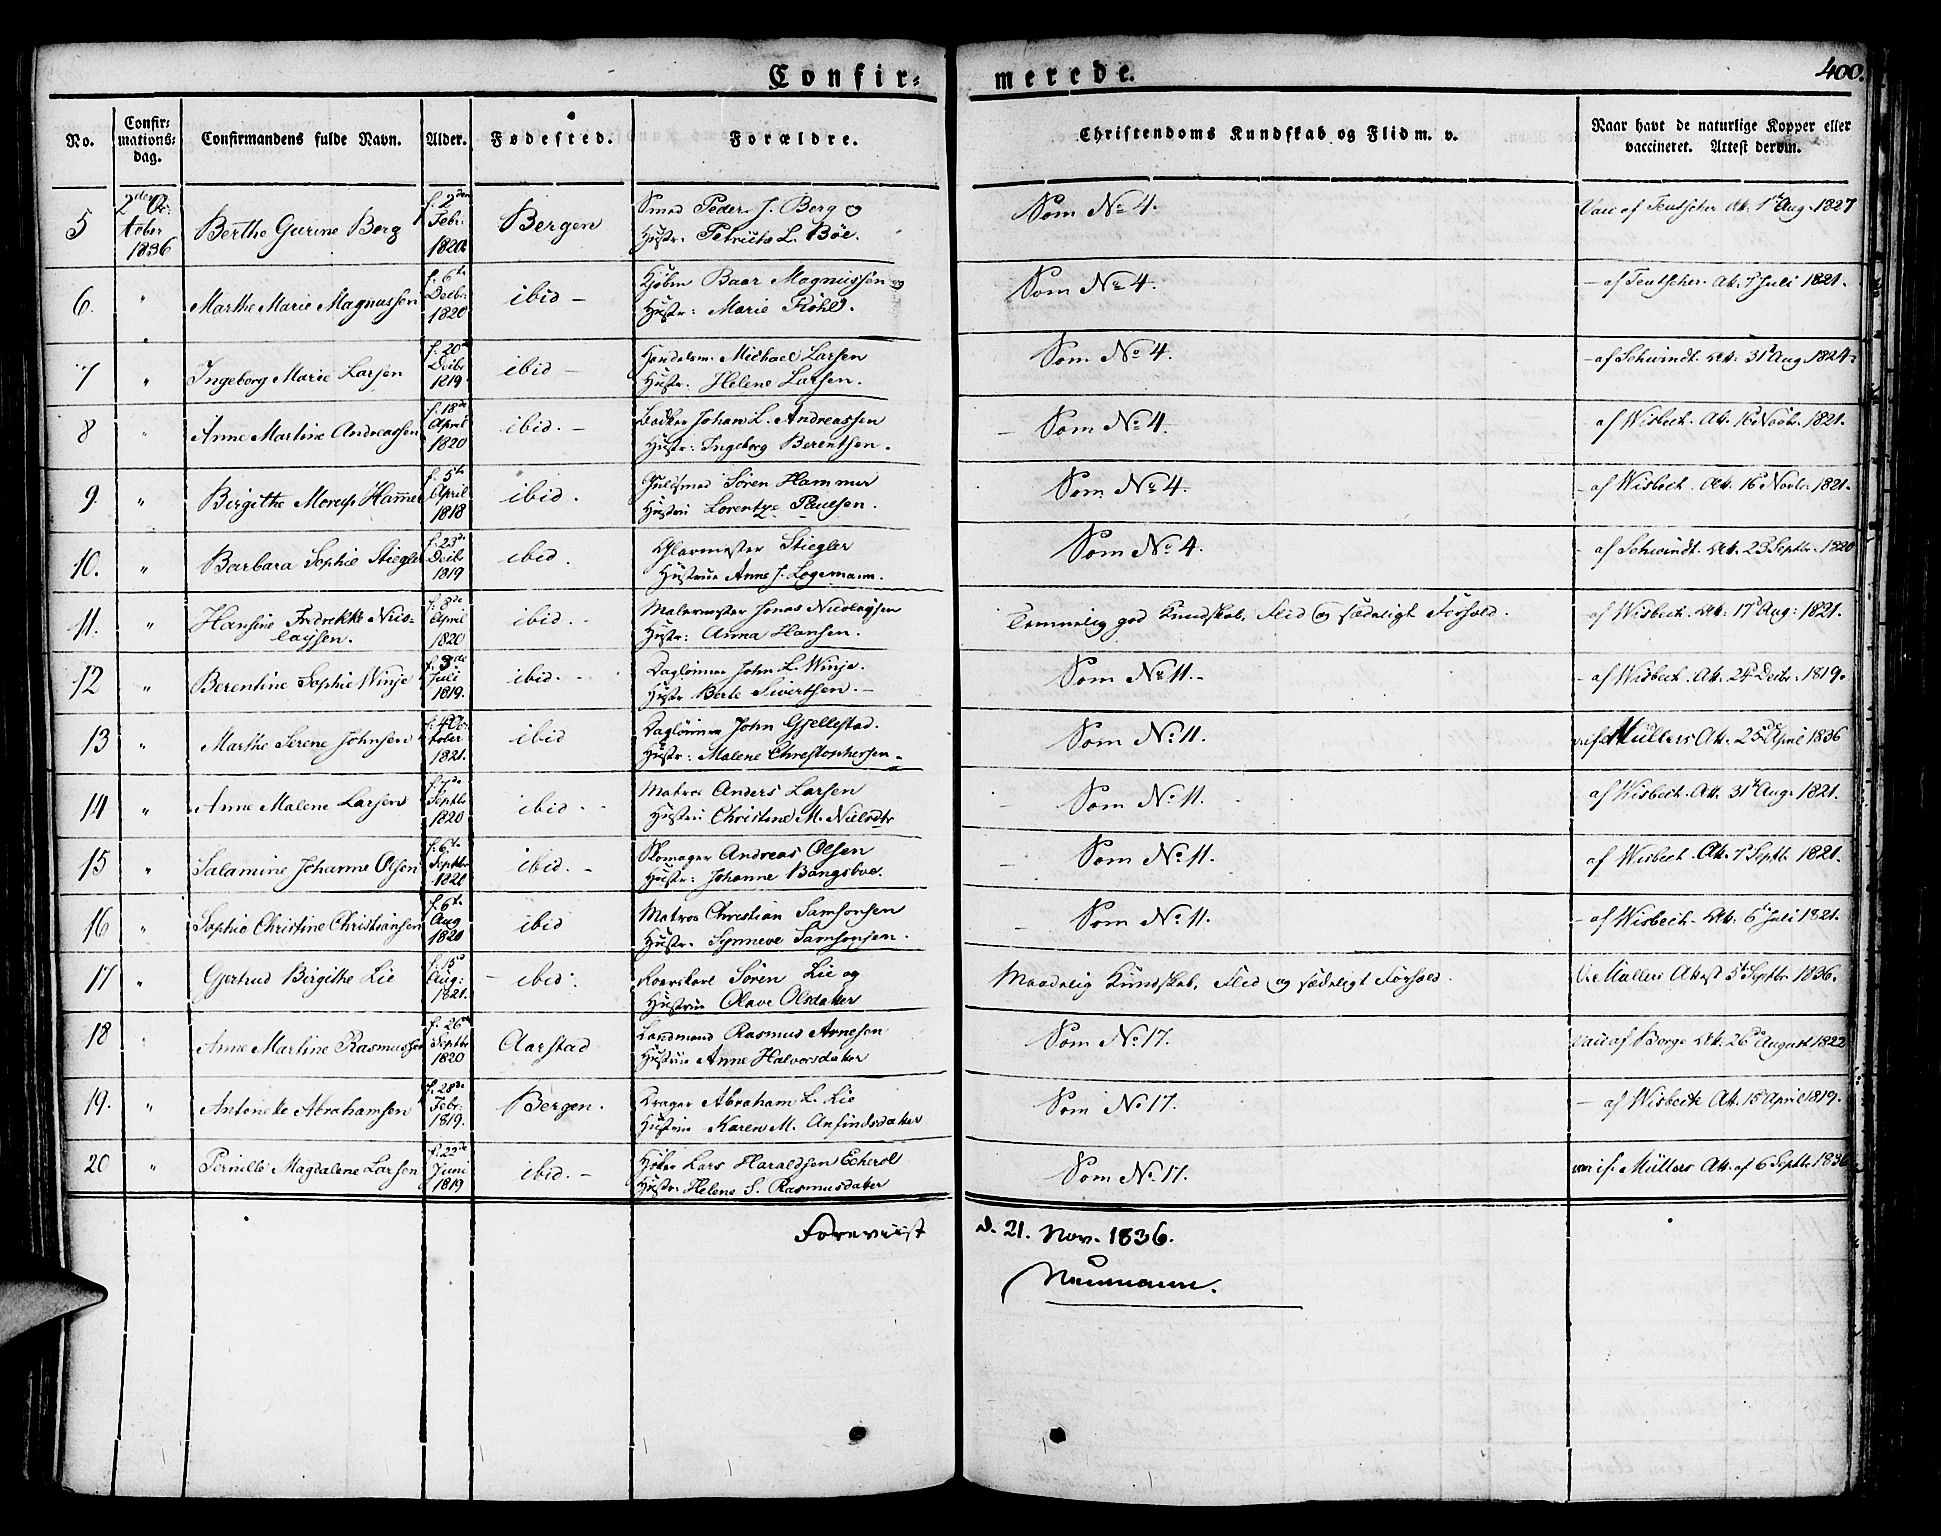 Confir= merede. 400.
No. Confir= mations= dag. Confirmandens fulde Navn. Alder. Fødested. Forældre. Christendoms Kundskab og Flid m. v. Naar havt de naturlige Kopper eller vaccineret. Attest derom.
5 2den Oc: tober 1836 Berthe Gurine Berg f. 2den Febr: 1820 Bergen Smed Peder J. Berg og Hustr: L. Böe. Som No 4. Vacc af Teutscher At. 1t Aug. 1827
6. " Marthe Marie Magnussen f. 6te Decbr. 1820 ibid — Baar Magnussen og Hustr: Marie Fröhl. Som No 4. — af Teutscher. At. 7 Juli 1821.
7 " Ingeborg Marie Larsen f. 20de Decbr 1819 ibid — Handelsm: Michael Larsen Hustr: Helene Larsen. Som No 4. — af Schwindt. At. 31t Aug 1824.
8 " Anne Martine Andreassen f. 18de April 1820 ibid. — Bødker Johan L. Andreassen Hustr: Ingeborg Berentsen. Som No 4. — af Wisbech. At. 16 Novbr. 1821.
9 " Birgithe Morup Hammer f. 5te April 1818 ibid. Guldsmed Sören Hammer Hustru Lorentze Paulsen. Som No 4. — af Wisbech. At. 16 Novbr. 1821.
10. " Barbara Sophie Stiegler f. 23de Decbr 1819 ibid. Glarmester Stiegler Hustrue Anne J. Logemann. Som No 4. — af Schwindt. At. 23 Septbr. 1820
11. " Hansine Fredrikke Nico= laysen. f. 8de April 1820 ibid. — Malermester Jonas Nicolaysen Hustr: Anna Hansen. Temmelig god Kundskab, Flid og sædeligt Forhold. — af Wisbech. At. 17 Aug: 1821.
12 " Berentine Sophie Winje f. 3de Juli 1819. ibid. — Dagleinner John L. Winje. Hustr Berte Sivertsen. — Som No 11. — — af Wisbech. At. 24 Decbr. 1819.
13 " Marthe Serene Johnsen f. 4 Oc: tober 1821. ibid Dagleinner John Gjellestad. Hustr: Malene Christophersen. Som No 11. Müllers At. 25de April 1836
14 " Anne Malene Larsen Septbr 1820 ibid — Matros Anders Larsen Hustru Christine M. Nielsdtr Som No 11. af Wisbech. At. 31t Aug. 1821.
15 " Salamine Johanne Olsen f. 6te Septbr 1820 ibid. — Skomager Andreas Olsen Hustr: Johanne Bangsboe. Som No 11. af Wisbech. At. 7 Septbr 1821.
16 " Sophie Christine Christiansen f. 6te Aug 1820 ibid Matros Christian Samsonsen Hustr. Synneve Samsonsen. Som No 11. — af Wisbech. At. 6 Juli 1821.
17 " Gjertrud Birgithe Lie f. 15de Aug: 1821. — ibid. Sören Lie og Hustrue Olave Olsdatter Maadelig Kundskab, Flid og sædeligt Forhold. Müllers Attest 5te Septbr 1836.
18 " Anne Martine Rasmussen f. 26de Septbr 1820 Aarstad Landmand Rasmus Arnesen Hustrue Anne Halvorsdatter Som No 17. vacc af Borge At. 26de August 1822
19. " Antonette Abrahamsen f. 28de Febr. 1819. Bergen. Drager Abraham L. Lie Hustrue Karen M. Anfindsdatter Som No 17. — af Wisbech At. 15 April 1819.
20 " Pernille Magdalene Larsen f. 22de Juni 1819 ibid. — Høker Lars Haraldsen Echerol Hustr: Helene S. Rasmusdatter Som No 17. Müllers At. af 6 Septbr 1836
Foreviist d. 21. Nov. 1836.
Neumann.